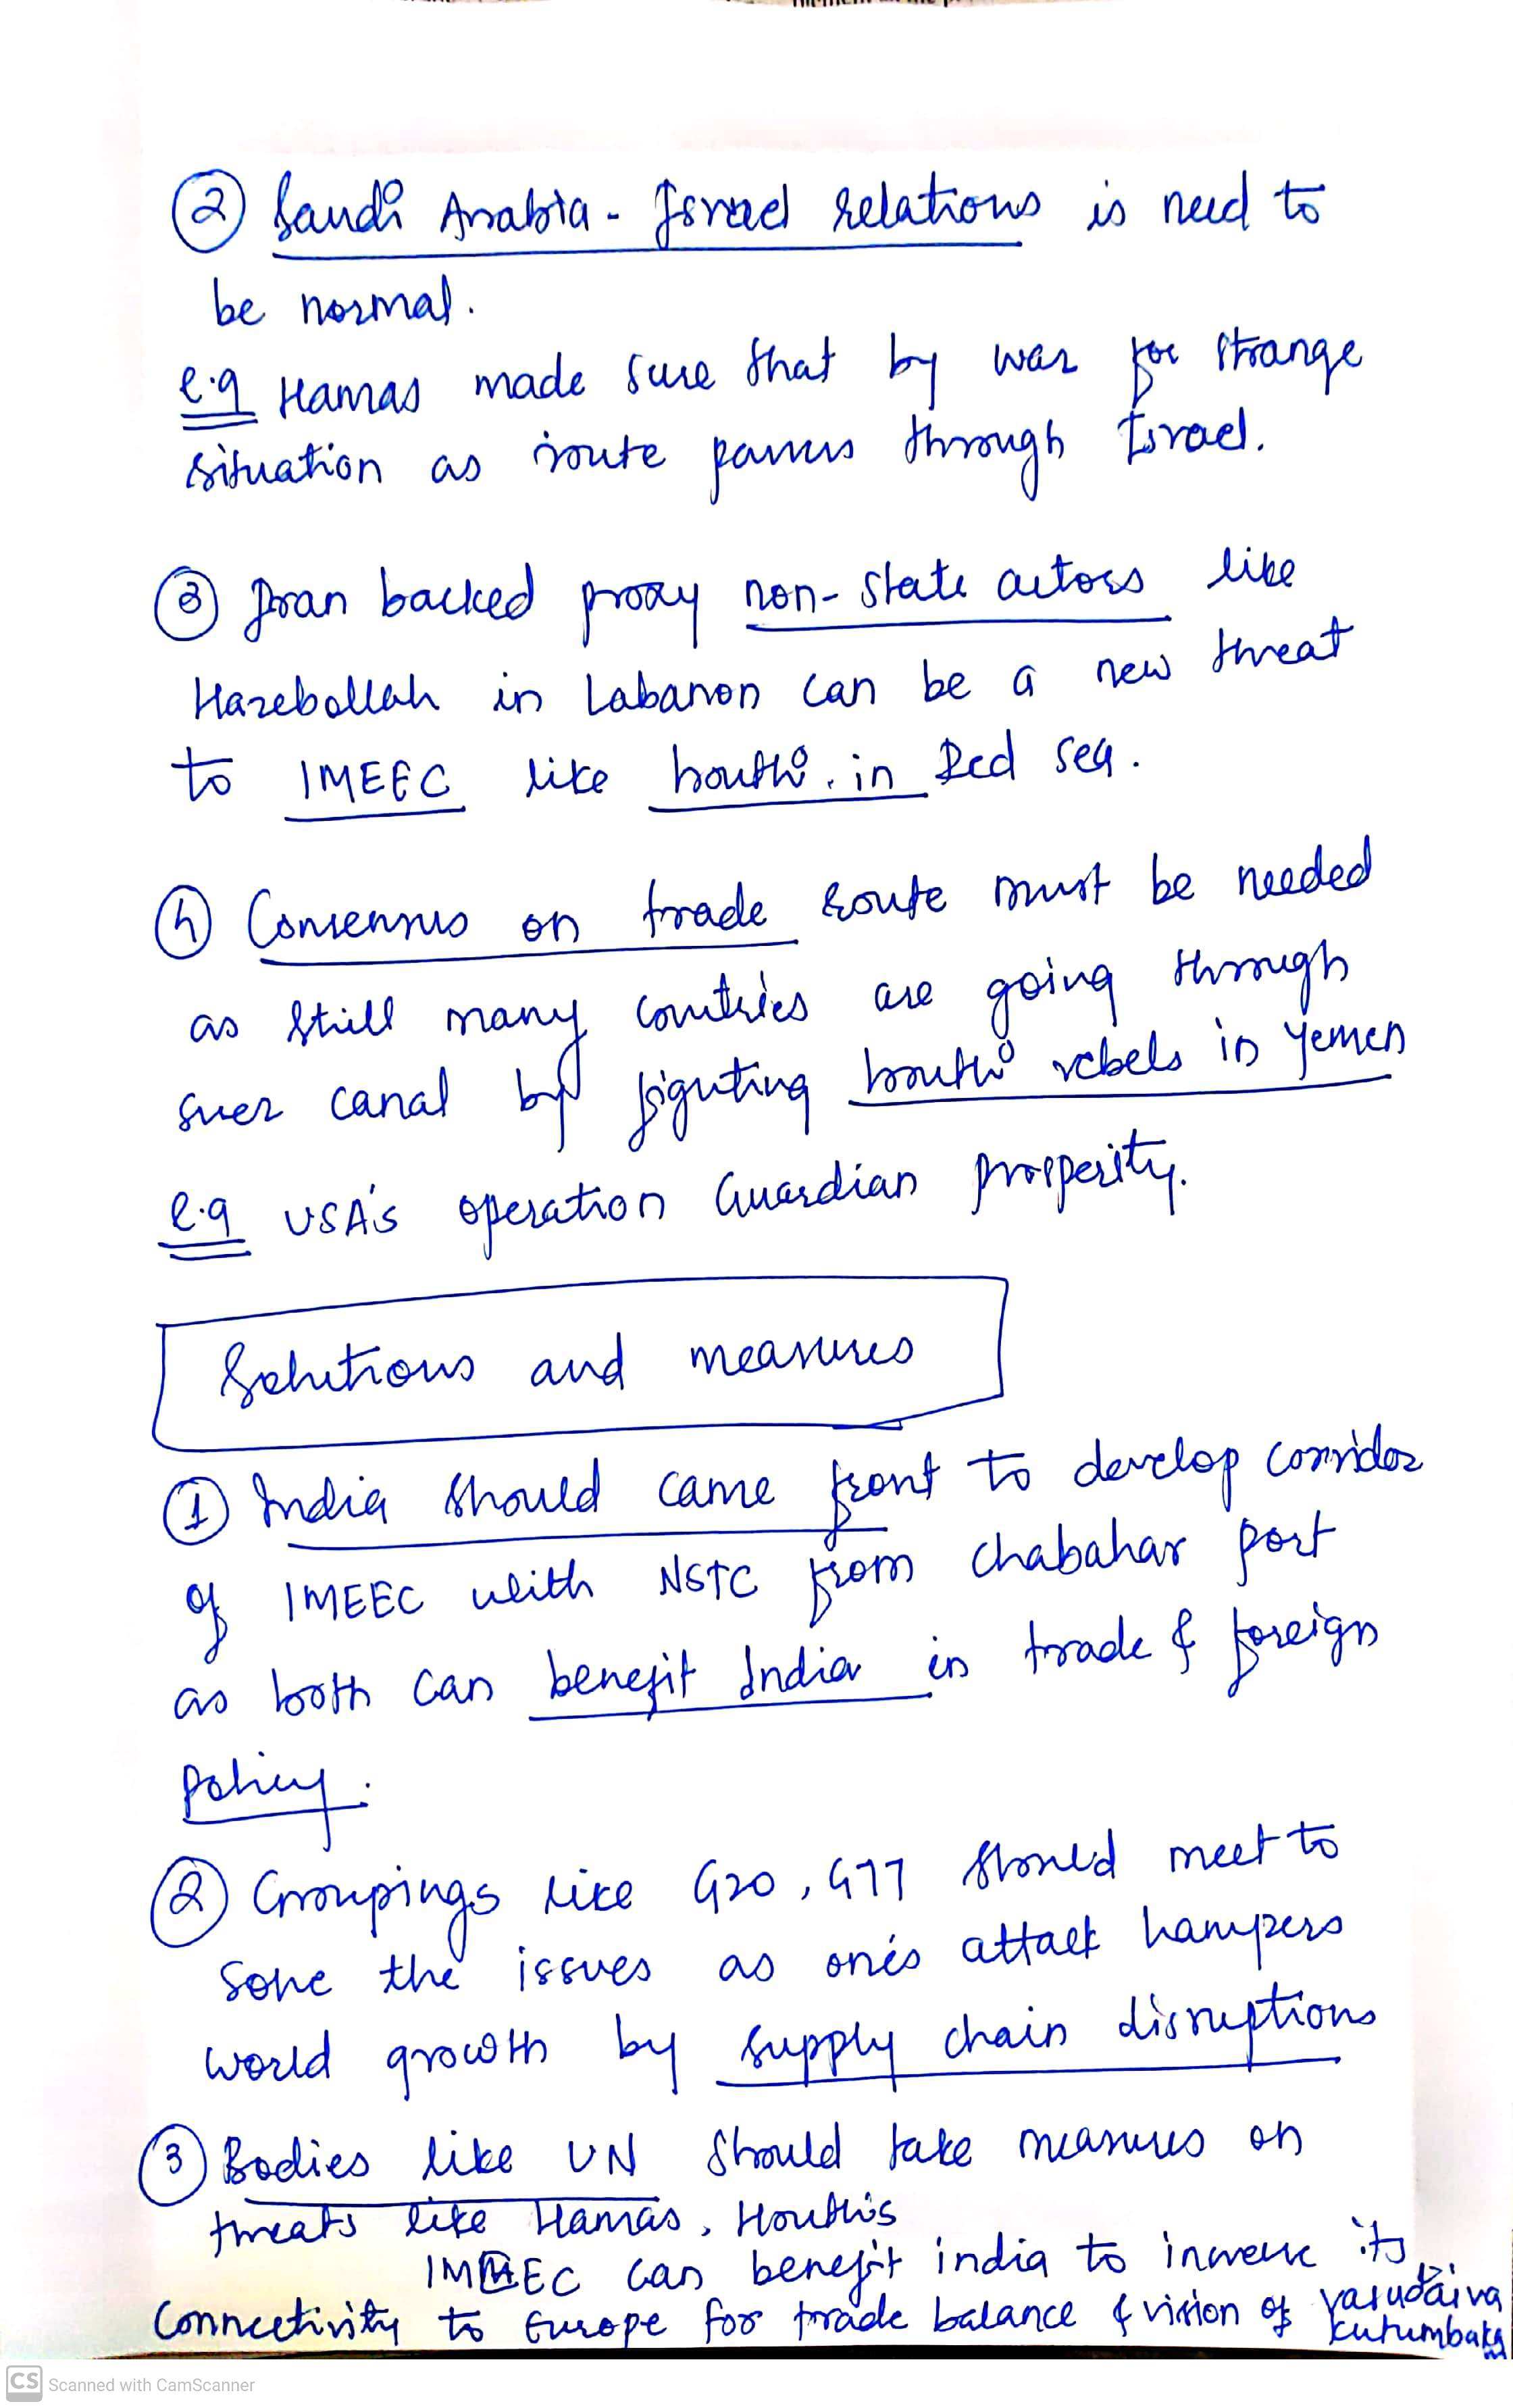 ② Saudi Arabia - Israel relations is need to
be normal.
e.g Hamas made sure that by war for strange
situation as route passes through Israel.
③ Iran backed proxy non-state actors like
Hazebollah in Labanon can be a new threat
to IMEEC like houthi in Red sea.
④ Consensus on trade route must be needed
as still many countries are going through
suez canal by figuting houthi rebels in Yemen
e.g USA's operation Guardian prosperity.
Solutions and measures
① India should came front to develop corridor
of IMEEC with NSTC from chabahar port
as both can benefit India in trade & foreign
policy.
② Groupings like G20, G77 should meet to
solve the issues as one's attack hampers
world growth by supply chain disruptions
③ Bodies like UN should take measures on
threats like Hamas, Houthis
IMEEC can benefit india to increase its
connectivity to Europe for trade balance & vision of vasudaiva
kutumbaka
CS Scanned with CamScanner